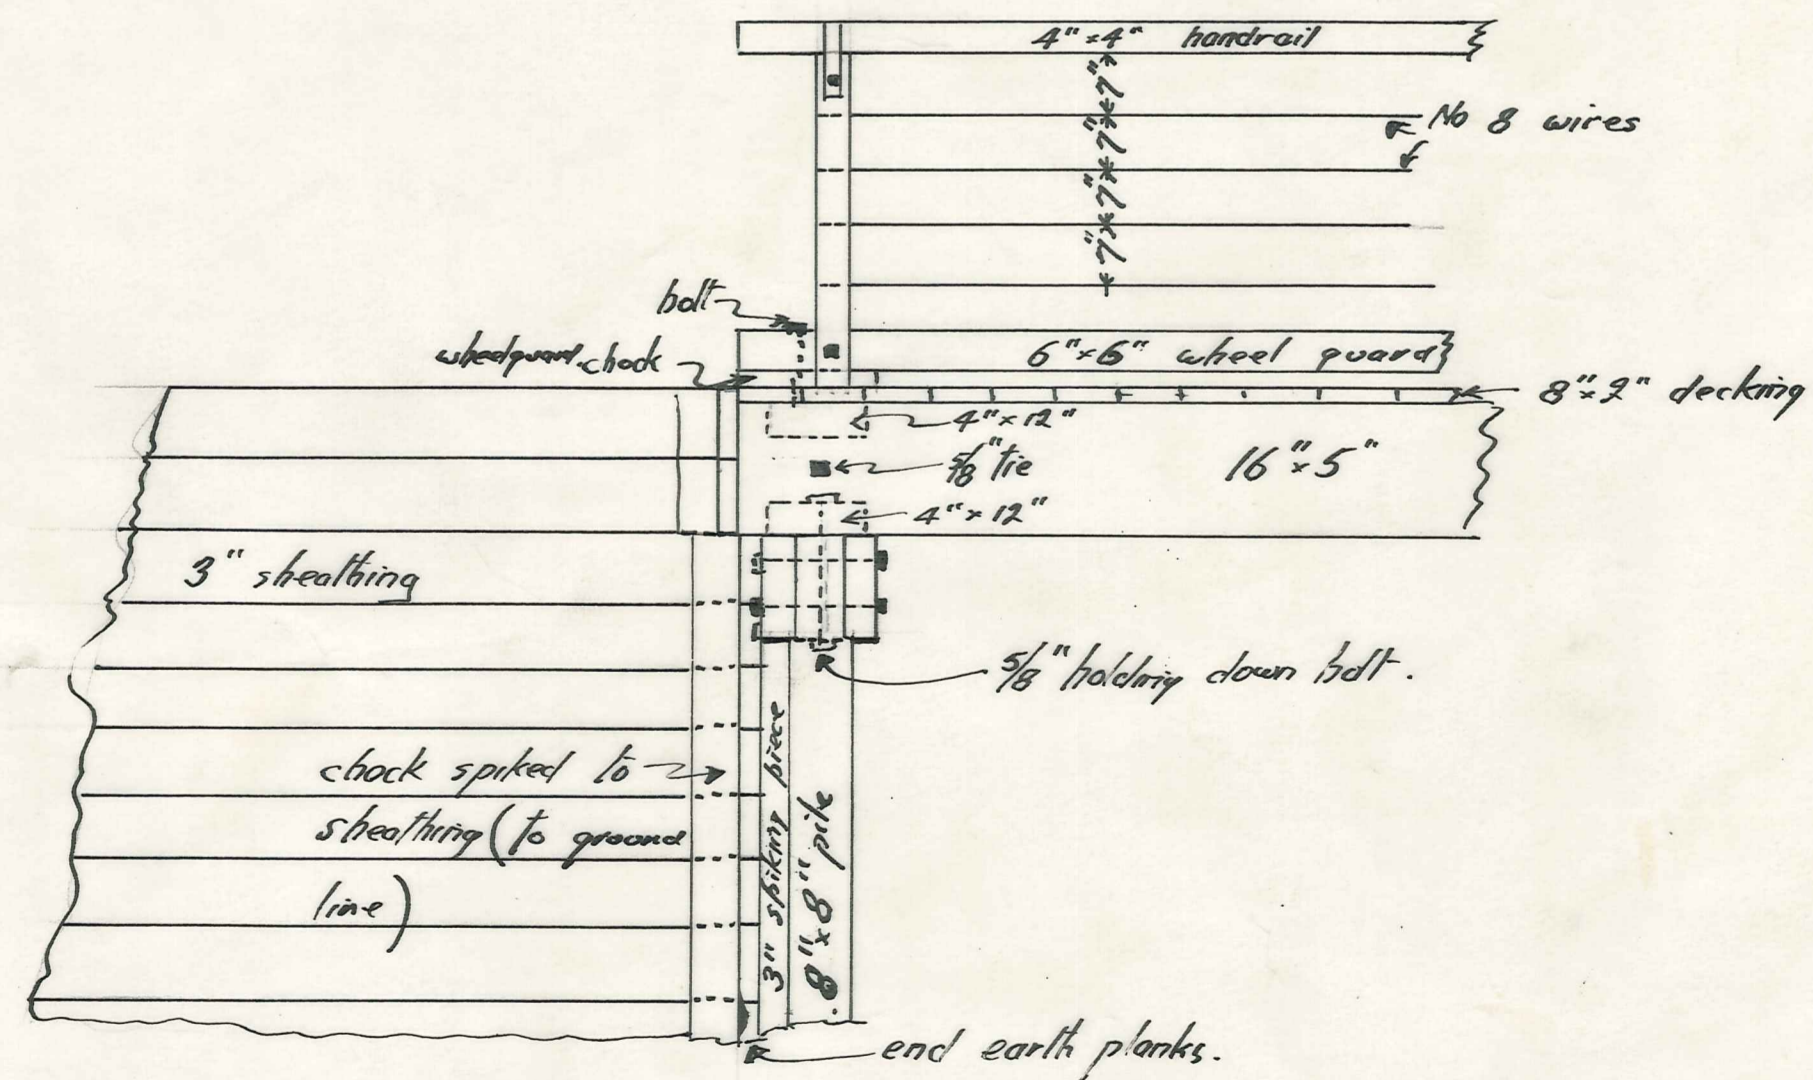 4"×4" handrail
7" 7" 7" 7"
No 8 wires
bolt
wheelguard chock
6"×6" wheel guard
8"×2" decking
4"×12"
5/8" tie
16"×5"
4"×12"
3" sheathing
5/8" holding down bolt.
chock spiked to
sheathing (to ground
line)
3" spiking piece
8"×8" pile
end earth planks.